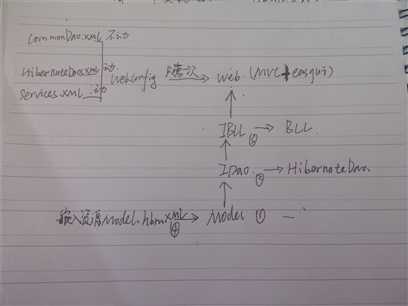 CommonDao.xml 不动
HibernateDao.xml 动
Services.xml 动
WebConfig → Web (MVC+easyui)
IBLL → BLL
IDao → HibernateDao.
嵌入资源Model.hbm.xml ④ → Model ①